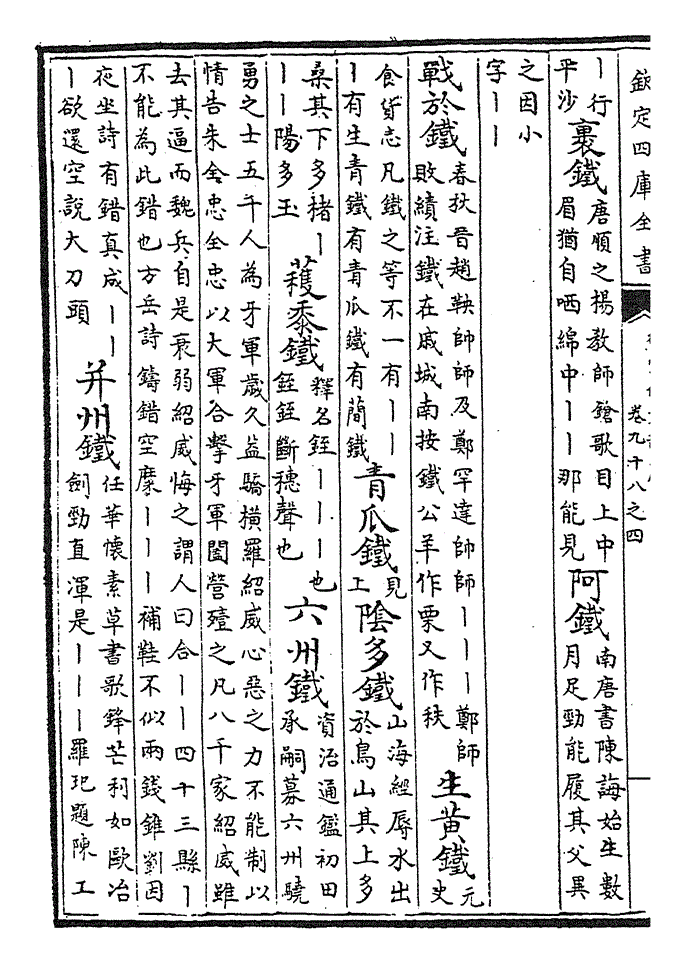 欽定四庫全書
卷九十八之四
丨行
平沙
裹鐵
唐順之楊教師鎗歌目上中
眉猶自哂綿中丨丨那能見
阿鐵
南唐書陳誨始生數
月足勁能履其父異
之因小
字丨丨
戰於鐵
春秋晉趙鞅帥師及鄭罕達帥師丨丨丨鄭師
敗績注鐵在戚城南按鐵公羊作栗又作秩
生黃鐵
元
史
食貨志凡鐵之等不一有丨丨
丨有生青鐵有青瓜鐵有簡鐵
青瓜鐵
見
上
陰多鐵
山海經辱水出
於鳥山其上多
桑其下多楮丨
丨丨陽多玉
穫黍鐵
釋名銍丨丨丨也
銍銍斷穗聲也
六州鐵
資治通鑑初田
承嗣募六州驍
勇之士五千人為牙軍歲久益驕橫羅紹威心惡之力不能制以
情告朱全忠全忠以大軍合擊牙軍闔營殪之凡八千家紹威雖
去其逼而魏兵自是衰弱紹威悔之謂人曰合丨丨四十三縣丨
不能為此錯也方岳詩鑄錯空糜丨丨丨補鞋不似兩錢錐劉因
夜坐詩有錯真成丨丨
丨欲還空說大刀頭
并州鐵
任華懷素草書歌鋒芒利如歐冶
劍勁直渾是丨丨丨羅玘題陳工